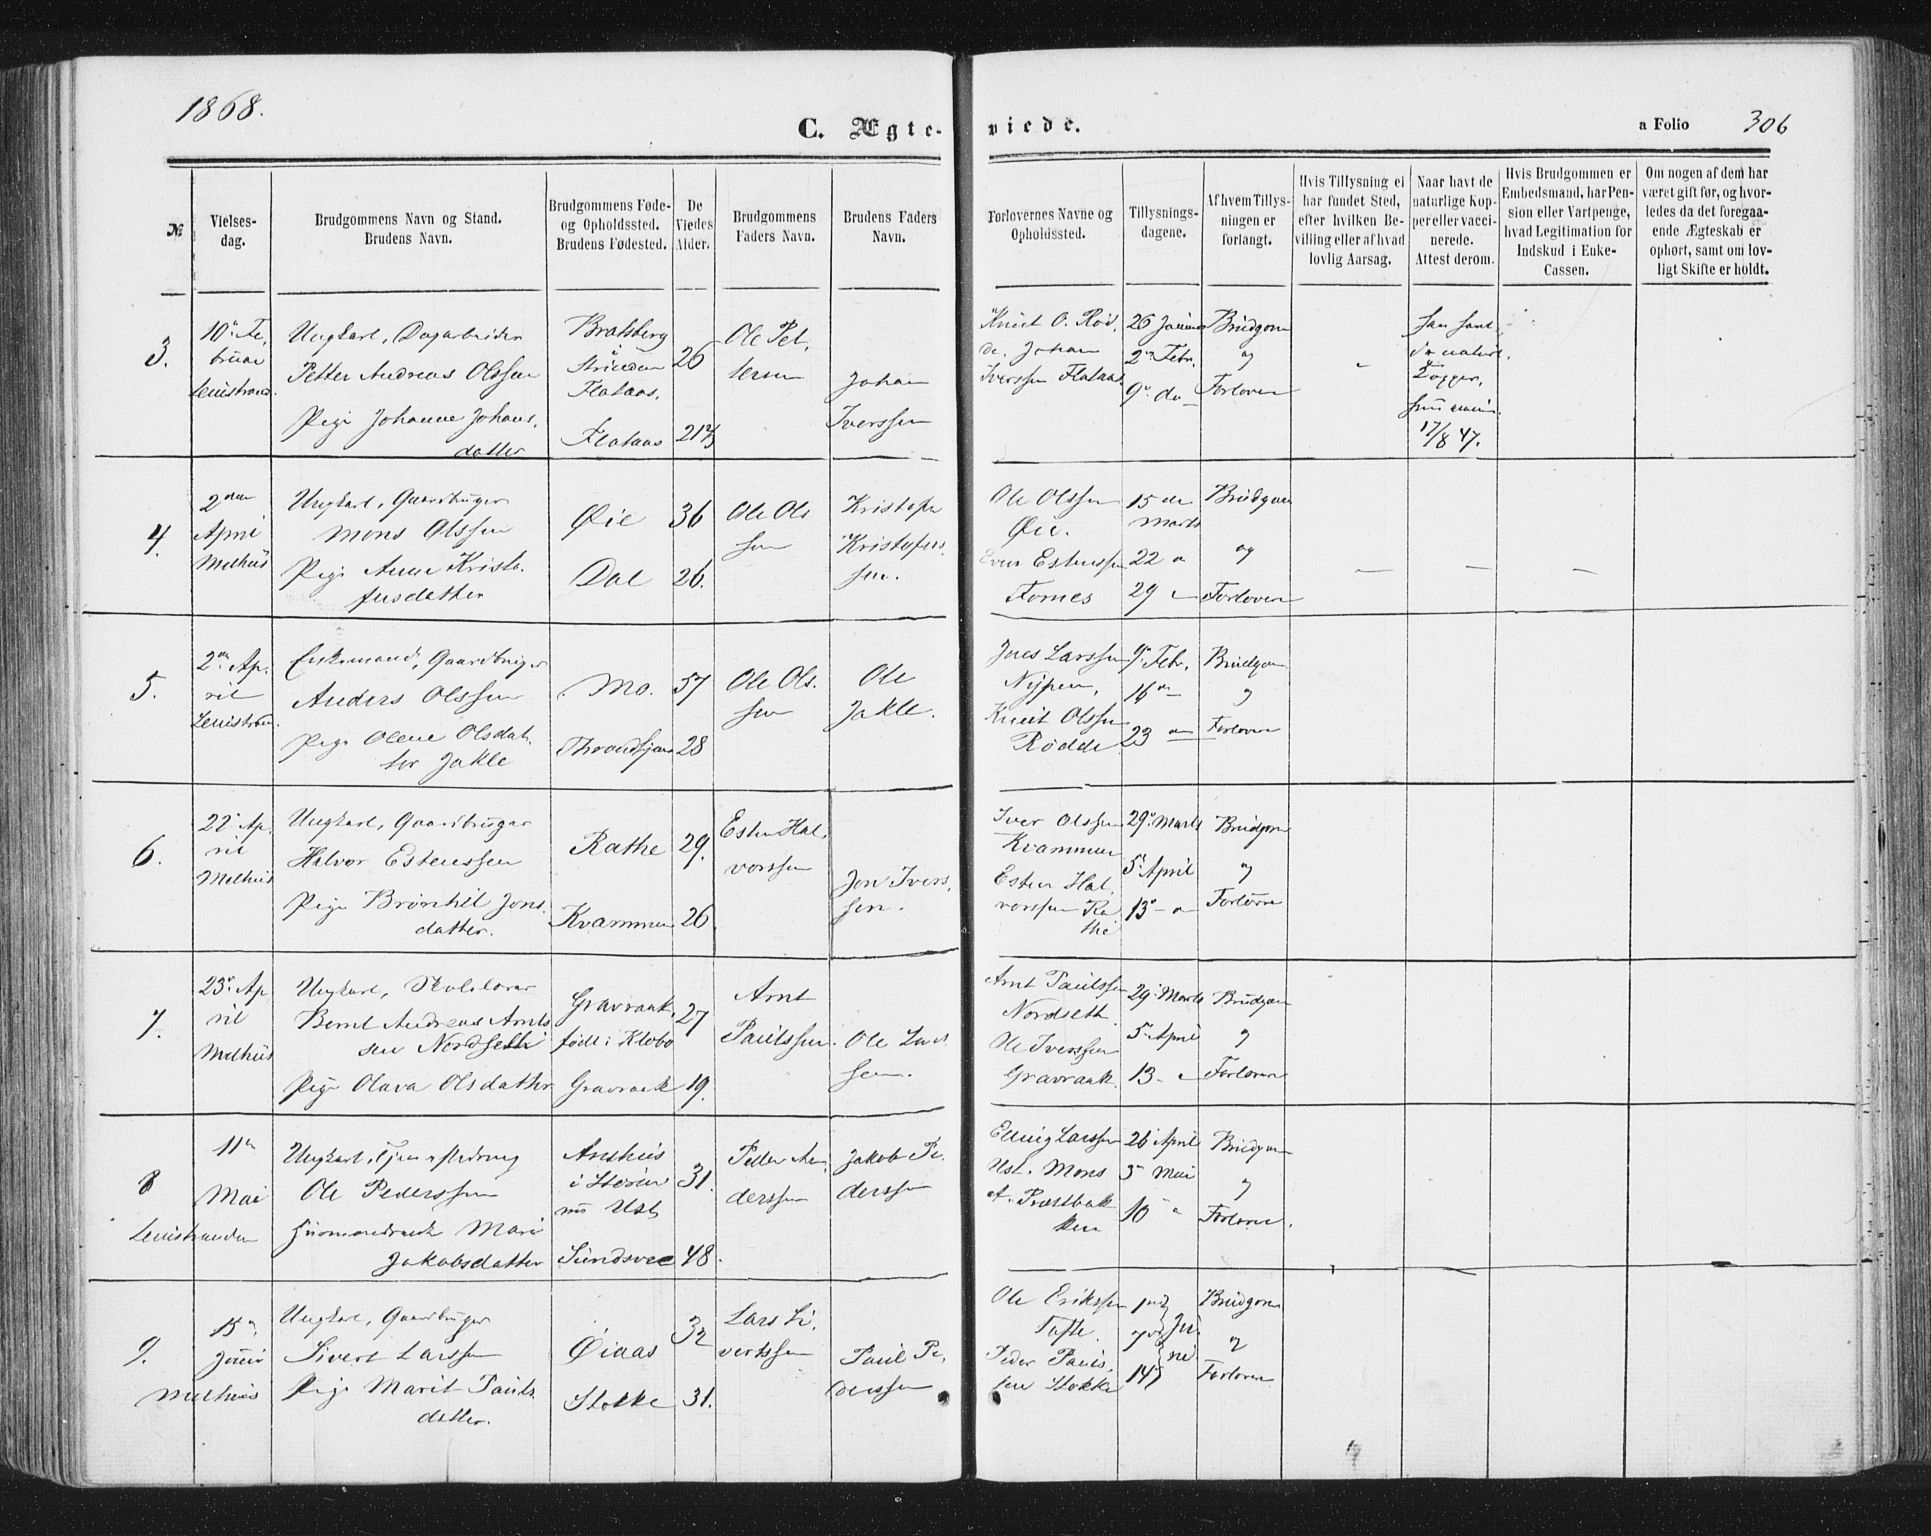 1868.
C. Ægte-
viede.
a Folio 306
№
Vielses-
dag.
Brudgommens Navn og Stand.
Brudens Navn.
Brudgommens Føde-
og Opholdssted.
Brudens Fødested.
De
Viedes
Alder.
Brudgommens
Faders Navn.
Brudens Faders
Navn.
Forlovernes Navne og
Opholdssted.
Tillysnings-
dagene.
Af hvem Tillys-
ningen er
forlangt.
Hvis Tillysning ei
har fundet Sted,
efter hvilken Be-
villing eller af hvad
lovlig Aarsag.
Naar havt de
naturlige Kop-
per eller vacci-
nerede.
Attest derom.
Hvis Brudgommen er
Embedsmand, har Pen-
sion eller Vartpenge,
hvad Legitimation for
Indskud i Enke-
Cassen.
Om nogen af dem har
været gift før, og hvor-
ledes da det foregaa-
ende Ægteskab er
ophørt, samt om lov-
ligt Skifte er holdt.
3.
10de Fe,
bruar
Leinstrand.
Ungkarl, Dagarbeider
Petter Andreas Olssen
Pige Johanne Johans,
datter
Bratsberg
i
Strinden
Flataas,
Flataas
26
21 2/3
Ole Pet,
tersen
Johan
Iverssen
Knut O. Rød,
de, Johan
Iverssen Flataas
26 Januar
2den Febr.
9de do
Brudgom
og
Forlover
17/8 47.
4.
2den
April
Melhus
Ungkarl, Gaardbruger
Mons Olssen
Pige Anne Kristo,
fersdatter
Øie
Dal
36
26.
Ole Ols
sen
Kristofer
Kristofers
sen.
Ole Olssen
Øie.
Even Estenssen
Fornes
15 de
Marts
22 "
29 "
Brudgom
og
Forlover
5.
2den Ap,
ril
Leinstran.
Enkemand, Gaardbruger
Anders Olssen
Pige Olene Olsdat,
ter Jakle
Mo.
Throndhjem
57
28
Ole Ols.
sen
Ole
Jakle.
Joes Larssen
Nypen,
Knut Olssen
Rødde
9de Febr,
16 de
23 "
Brudgom
og
Forlover
6.
22de Ap,
ril
Melhus
Ungkarl, Gaardbruger
Halvor Estenssen
Pige Brønhil Jons
datter.
Rathe
Kvammen
29.
26
Esten Hal,
vorssen
Jon Ivers,
sen.
Iver Olssen
Kvammen
Esten Hal,
vorssen Ra
the
29de Marts
5te April
13de "
Brudgom
og
Forlover
7.
23de Ap
ril
Melhus
Ungkarl, Skolelærer
Bernt Andreas Arnts
sen Nordseth
Pige Olava Olsdatter
Gravraak,
født i Klebo
Gravraak
27
19.
Arnt
Paulssen.
Ole Lars
sen.
Arnt Paulssen
Nordseth
Ole Iverssen
Gravraak.
29de Marts
5te April
13 "
Brudgom
og
Forlover
8
11te
Mai
Leinstranden
Ole Pederssen
Mari
Jakobsdatter
i Støren
nu Ust
Sundsvee
31.
48.
Peder
derssen
Jakob Pe,
derssen
Elling Larssen
Ust. Mons
A. Præstbak
ken
26 April
3 Mai
10 "
Brudgom
og
Forlover.
9.
15de
Juni
Melhus
Ungkarl, Gaardbruger
Sivert Larssen
Pige Marit Pauls
datter.
Øiaas
Stokke
32
31.
Lars Si,
vertssen
Paul Pe,
derssen
Ole Erikssen
Tofte.
Peder Pauls,
sen Stokke
1ste
7de
14de
Ju,
ni.
Brudgom
og
Forlover